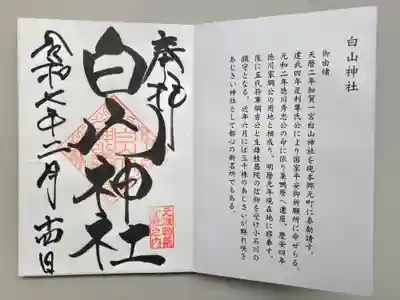 白山神社
御由緒
天暦二年加賀一宮白山神社を現本郷元町に奉勧請す。
建武四年足利尊氏公により国家平安御祈願所に命ぜらる。
元和二年徳川秀忠公の命に依り巣鴨原へ遷座、慶安四年
徳川家綱公の用地と相成り、明暦元年現在地に移奉す。
後に五代将軍綱吉公と生母桂昌院の信仰を受け小石川の
鎮守となる。近年六月には三千株のあじさいが群れ咲き
あじさい神社として都心の新名所でもある。
奉拝
白山神社
令和七年二月